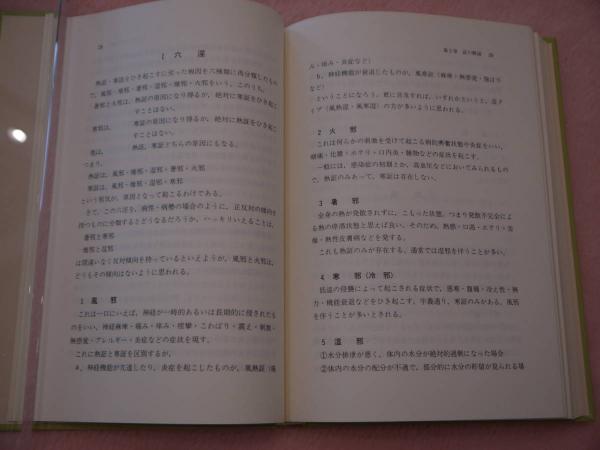 28
Ⅰ 六淫
熱証・寒証をひき起こすに使った病因を六種類に再分類したもので、
風邪・燥邪・湿邪・暑邪・火邪・寒邪をいう。このうち、
暑邪と火邪は、熱証の原因になり得るが、絶対に寒証をひき起こすことはない。
寒邪は、寒証の原因になり得るが、絶対に熱証をひき起こすことはない。
他は、熱証、寒証どちらの原因にもなる。
つまり、
熱証は、風邪・燥邪・湿邪・暑邪・火邪
寒証は、風邪・燥邪・湿邪・寒邪
という邪気が、原因となって起こるわけである。
さて、この六淫を、病性・病勢の場合のように、正反対の傾向を
持つものに分類するとどうなるだろうか。ハッキリいえることは、
暑邪と寒邪
燥邪と湿邪
は間違いなく反対傾向を持っているといえようが、風邪と火邪は、
どうもその傾向はないように思われる。
1 風邪
これは一口にいえば、神経が一時的あるいは長期的に侵されたも
のをいい、神経麻痺・痛み・痒み・痙攣・こわばり・震え・刺激・
無感覚・アレルギー・炎症などの症状を現す。
これに熱証と寒証を区別するが、
a、神経機能が亢進したり、炎症を起こしたものが、風熱証（痛
第2章 証の解説 29
み・痒み・炎症など）
b、神経機能が衰退したものが、風寒証（麻痺・無感覚・強ばり
など）
ということになろう。更に言及すれば、いずれかというと、湿タ
イプ（風熱湿・風寒湿）の方が多いように思われる。
2 火邪
これは何らかの刺激を受けて起こる病的興奮状態や炎症をいい、
瘡瘍・化膿・ホテリ・口内炎・腫物などの症状を起こす。
一般には、感染症の初期とか、高血圧などにおいてみられるもの
で、熱証のみあって、寒証は存在しない。
3 暑邪
全身の熱が発散されずに、こもった状態、つまり発散不完全によ
る熱の停滞状態と思えば良い。そのため、熱感・口渇・エキソ・昏
睡・熱性皮膚病などを発する。
これも熱証のみが存在する。通常では湿邪を伴うことが多い。
4 寒邪（冷邪）
低温の侵襲によって起こされる症状で、悪寒・腹痛・冷え性・無
力・機能衰退などをひき起こす。字義通り、寒証のみがある。風邪
を伴うことが多いとされる。
5 湿邪
①水分排泄が悪く、体内の水分が絶対的過剰になった場合
②体内の水分の配分が不適で、部分的に水分の貯留が見られる場